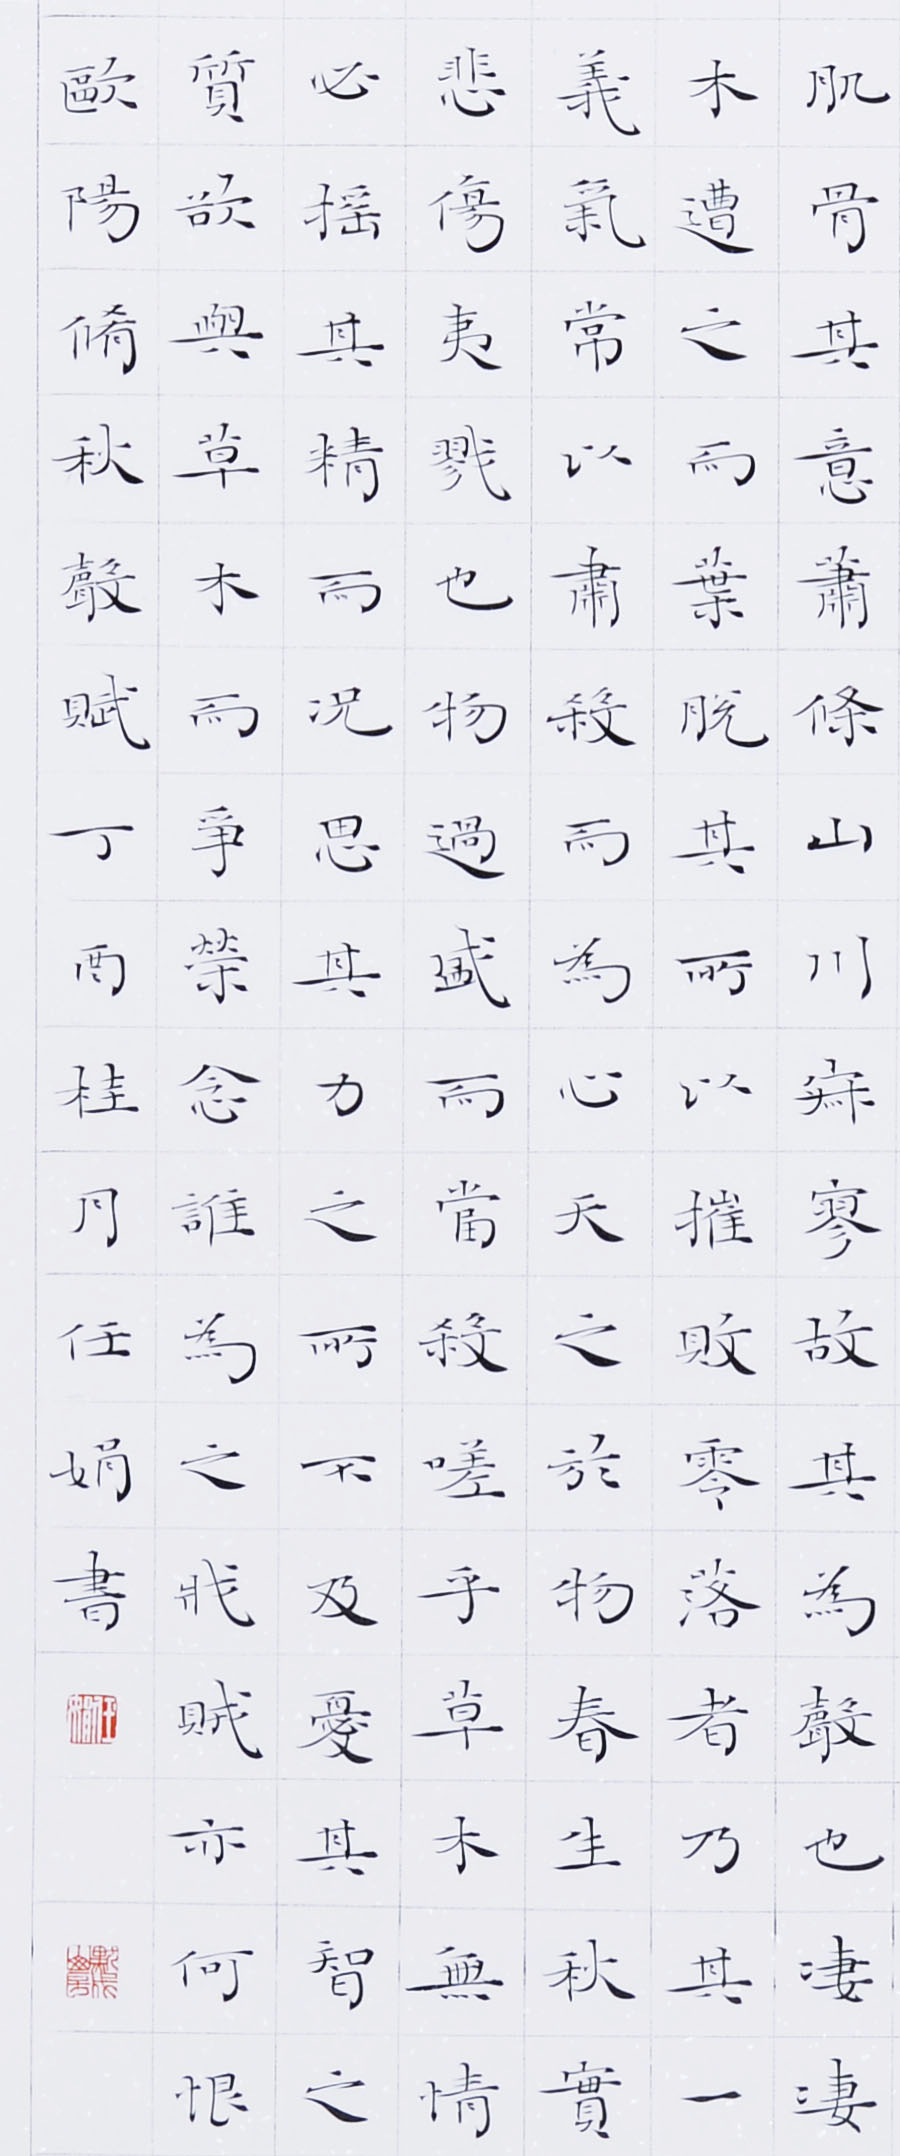 肌骨其意蕭條山川寂寥故其為聲也淒淒
木遭之而葉脫其所以摧敗零落者乃其一
義氣常以肅殺而為心天之於物春生秋實
悲傷夷戮也物過盛而當殺嗟乎草木無情
必摇其精而況思其力之所不及憂其智之
質欲與草木而爭榮念誰為之戕賊亦何恨
歐陽脩秋聲賦丁酉桂月任娟書